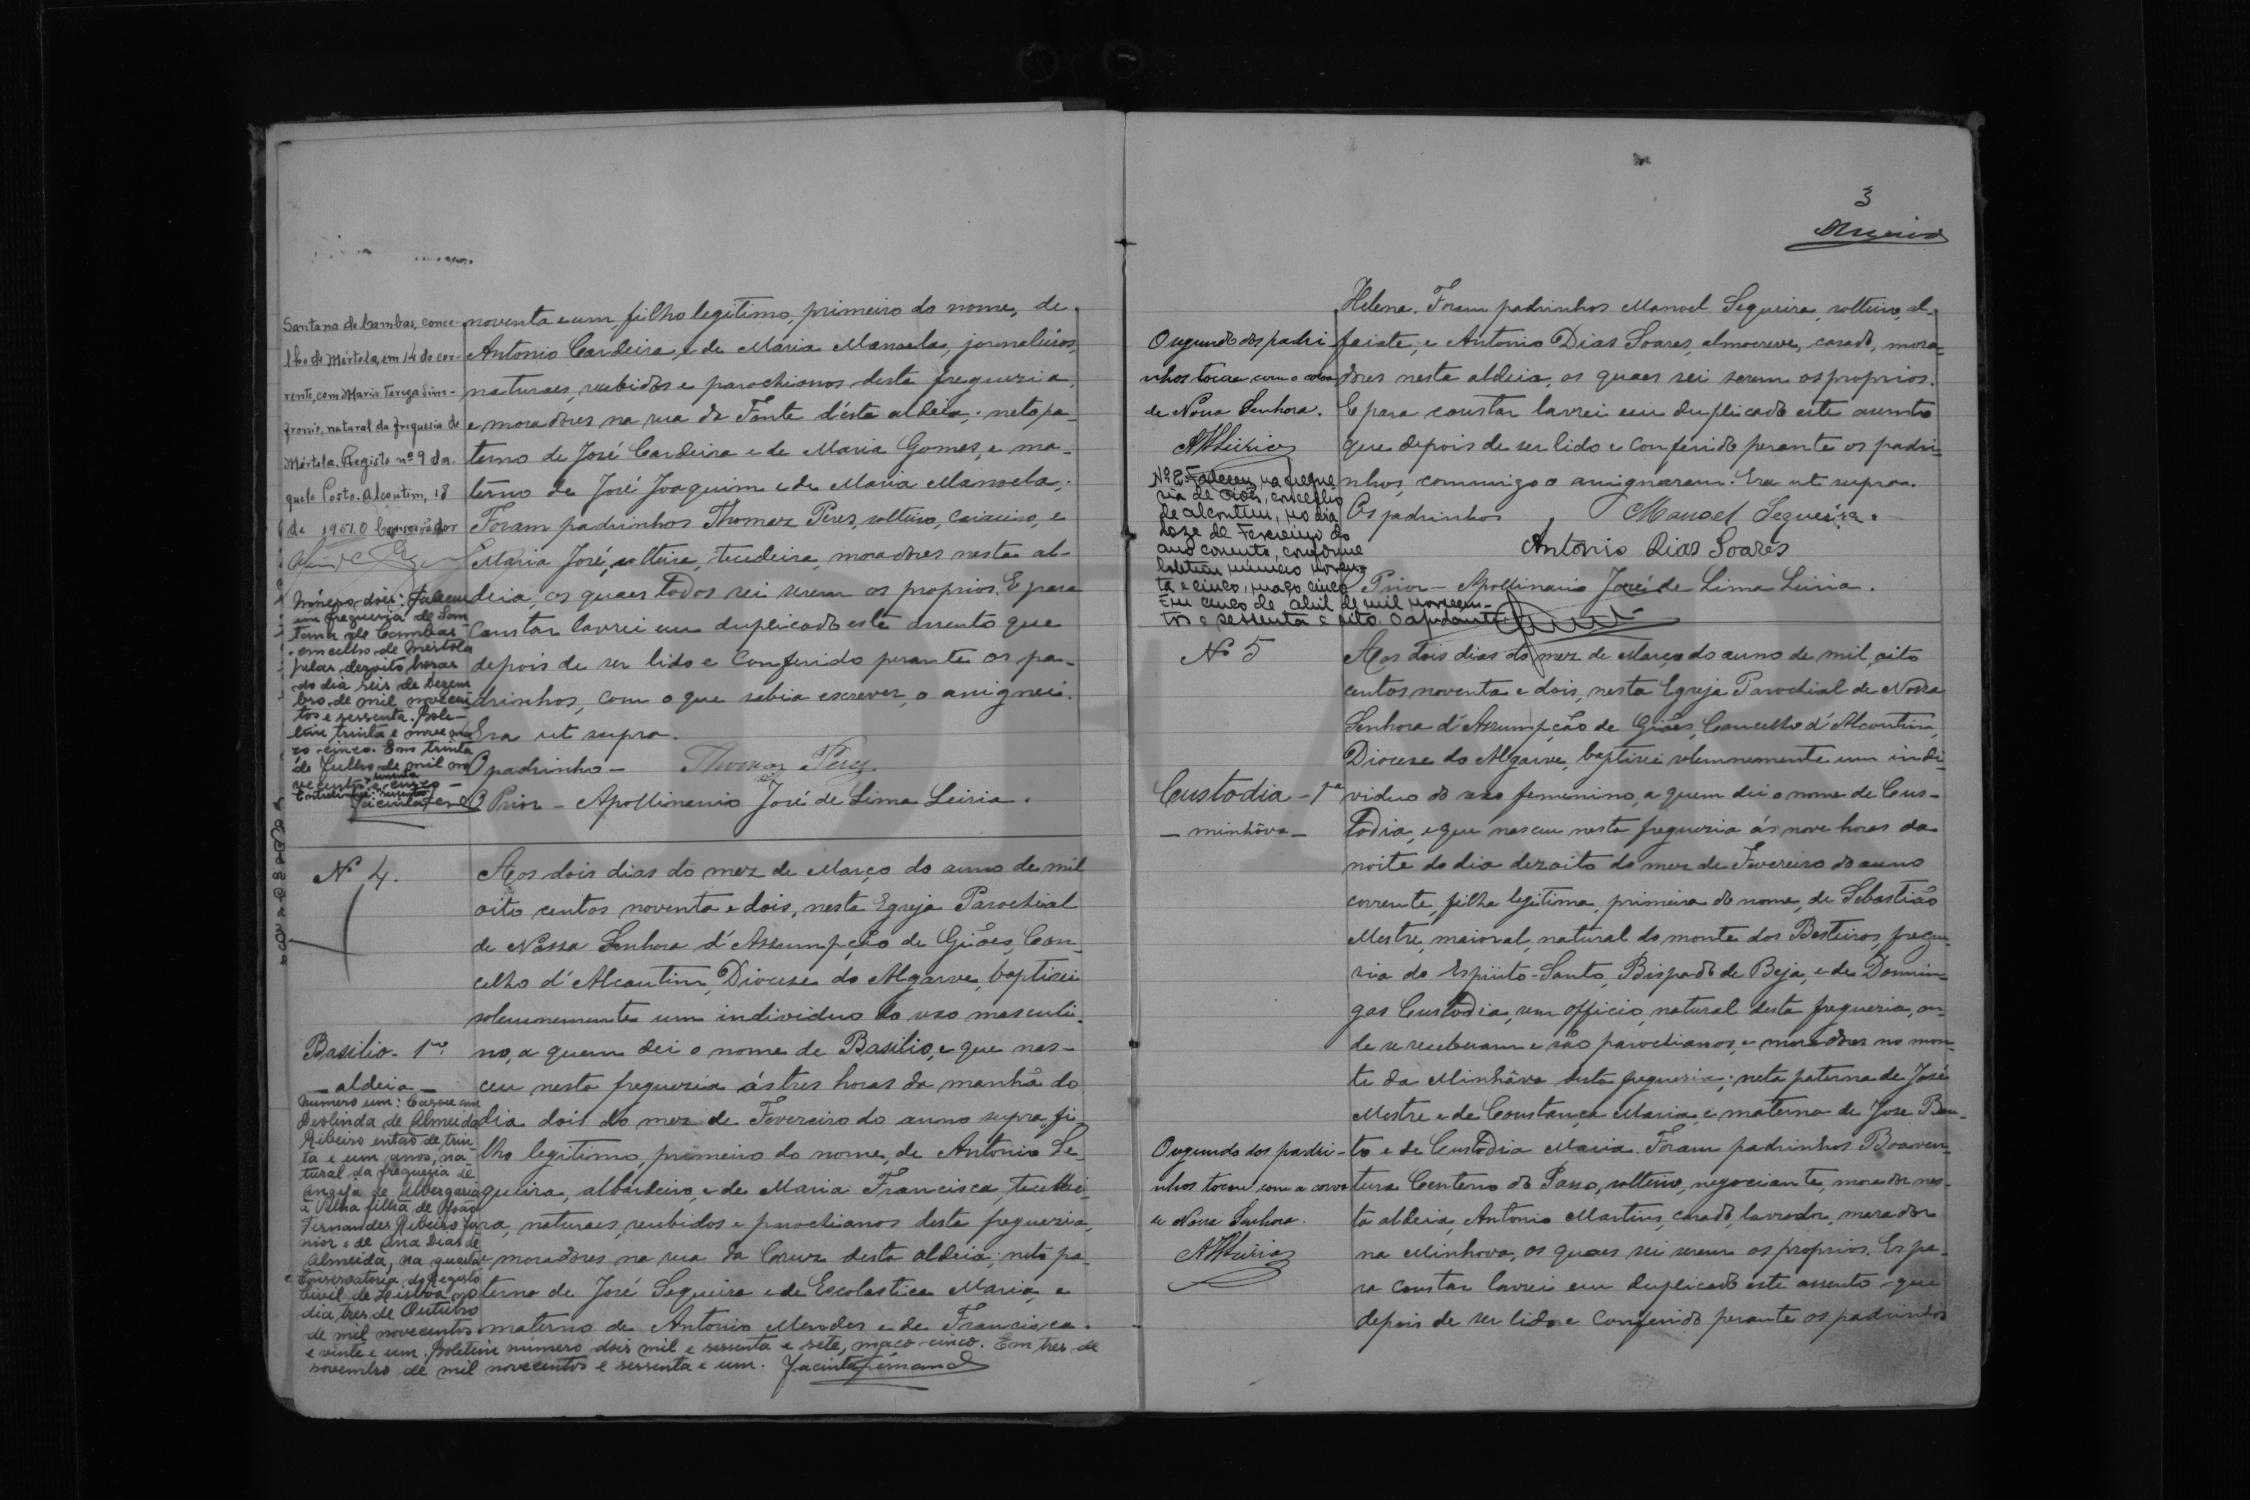 Santana de Cambas, conce-
lho de Mértola, em 14 do cor-
rente, com Maria Tereza
natural da freguesia de
Mértola. Registo nº 9 da-
quele Posto. Alcoutim, 18
de 1961. O Conservador
Número dois: Faleceu
em freguesia de San-
tana de Cambas
concelho de Mértola
pelas dezoito horas
do dia seis de Dezem
bro de mil novecen
tos e sessenta. Bole-
tim trinta e nove ma
ço cinco. Em trinta
de Julho de mil no
vecentos e
noventa e um, filho legitimo, primeiro do nome, de
Antonio Cardeira, e de Maria Manoela, jornaleiros,
naturaes, recebidos e parochianos desta freguezia,
e moradores na rua da Fonte d'esta aldeia; neto pa-
terno de José Cardeira e de Maria Gomes, e ma-
terno de José Joaquim e de Maria Manoela;
Foram padrinhos Thomaz Peres, solteiro, caixeiro, e
Maria José, solteira, tecedeira, moradores nesta al-
deia, os quaes todos sei serem os proprios. E para
constar lavrei em duplicado este assento que
depois de ser lido e conferido perante os pa-
drinhos, com o que sabia escrever, o assignei.
Era ut supra.
O padrinho - Thomaz Perez
O Prior - Apollinario José de Lima Leiria.
Nº 4.
Basilio - 1º
- aldeia -
Numero um: Casou com
Deolinda de Almeida
Ribeiro então de trin
ta e um anos, na-
tural da freguesia de
Angeja de Albergaria
a Velha filha de João
Fernandes Ribeiro Ju
nior e de Ana Dias de
Almeida, na quarta
Conservatoria do Registo
Civil de Lisboa no
dia tres de Outubro
de mil novecentos
e vinte e um. Boletim número dois mil e sessenta e sete, maço cinco. Em tres de
novembro de mil novecentos e sessenta e um. Jacinto Fernand
Aos dois dias do mez de Março do anno de mil
oito centos noventa e dois, nesta Egreja Parochial
de Nossa Senhora d'Assumpção de Giões, Con-
celho d'Alcoutim, Diocese do Algarve, baptisei
solemnemente um individuo do sexo masculi-
no, a quem dei o nome de Basilio, e que nas-
ceu nesta freguezia ás tres horas da manhã do
dia dois do mez de Fevereiro do anno supra, fi-
lho legitimo, primeiro do nome, de Antonio Se-
queira, albardeiro, e de Maria Francisca, tecedei-
ra, naturaes, recebidos e parochianos desta freguezia,
e moradores na rua da Cruz desta aldeia; neto pa-
terno de José Sequeira e de Escolastica Maria, e
materno de Antonio Mendes e de Francisca
3
Helena. Foram padrinhos Manoel Sequeira, solteiro, al-
faiate, e Antonio Dias Soares, almocreve, casado, mora-
dores nesta aldeia, os quaes sei serem os proprios.
E para constar lavrei em duplicado este assento
que depois de ser lido e conferido perante os padri-
nhos, commigo o assignaram. Era ut supra.
Os padrinhos Manoel Sequeira.
Antonio Dias Soares
Prior - Apollinario José de Lima Leiria.
O segundo dos padri-
nhos tocou com a coroa
de Nossa Senhora.
ALeiria
Nº 2. Faleceu na fregue-
sia de Giões, concelho
de Alcoutim, no dia
doze de Fevereiro do
ano corrente, conforme
boletim número noven-
ta e cinco, maço cinco
Em cinco de Abril de mil novecen-
tos e sessenta e oito. O ajudante
Nº 5
Custodia - 1ª
- minhôva -
O segundo dos padri-
nhos tocou com a coroa
de Nossa Senhora.
ALeiria
Aos dois dias do mez de Março do anno de mil oito
centos noventa e dois, nesta Egreja Parochial de Nossa
Senhora d'Assumpção de Giões, Concelho d'Alcoutim,
Diocese do Algarve, baptisei solemnemente um indi-
viduo do sexo femenino, a quem dei o nome de Cus-
todia, e que nasceu nesta freguezia ás nove horas da
noite do dia dezoito do mez de Fevereiro do anno
corrente, filha legitima, primeira do nome, de Sebastião
Mestre, maioral, natural do monte dos Besteiros, fregue-
zia do Espirito-Santo, Bispado de Beja, e de Domin-
gas Custodia, sem officio, natural desta freguezia, on-
de se receberam e são parochianos, e moradores no mon-
te da Minhôva desta freguezia; neta paterna de José
Mestre e de Constança Maria, e materna de José Ben-
to e de Custodia Maria. Foram padrinhos Boaven-
tura Centeno do Passo, solteiro, negociante, morador nes-
ta aldeia, Antonio Martins, casado, lavrador, morador
na Minhova, os quaes sei serem os proprios. E pa-
ra constar lavrei em duplicado este assento que
depois de ser lido e conferido perante os padrinhos